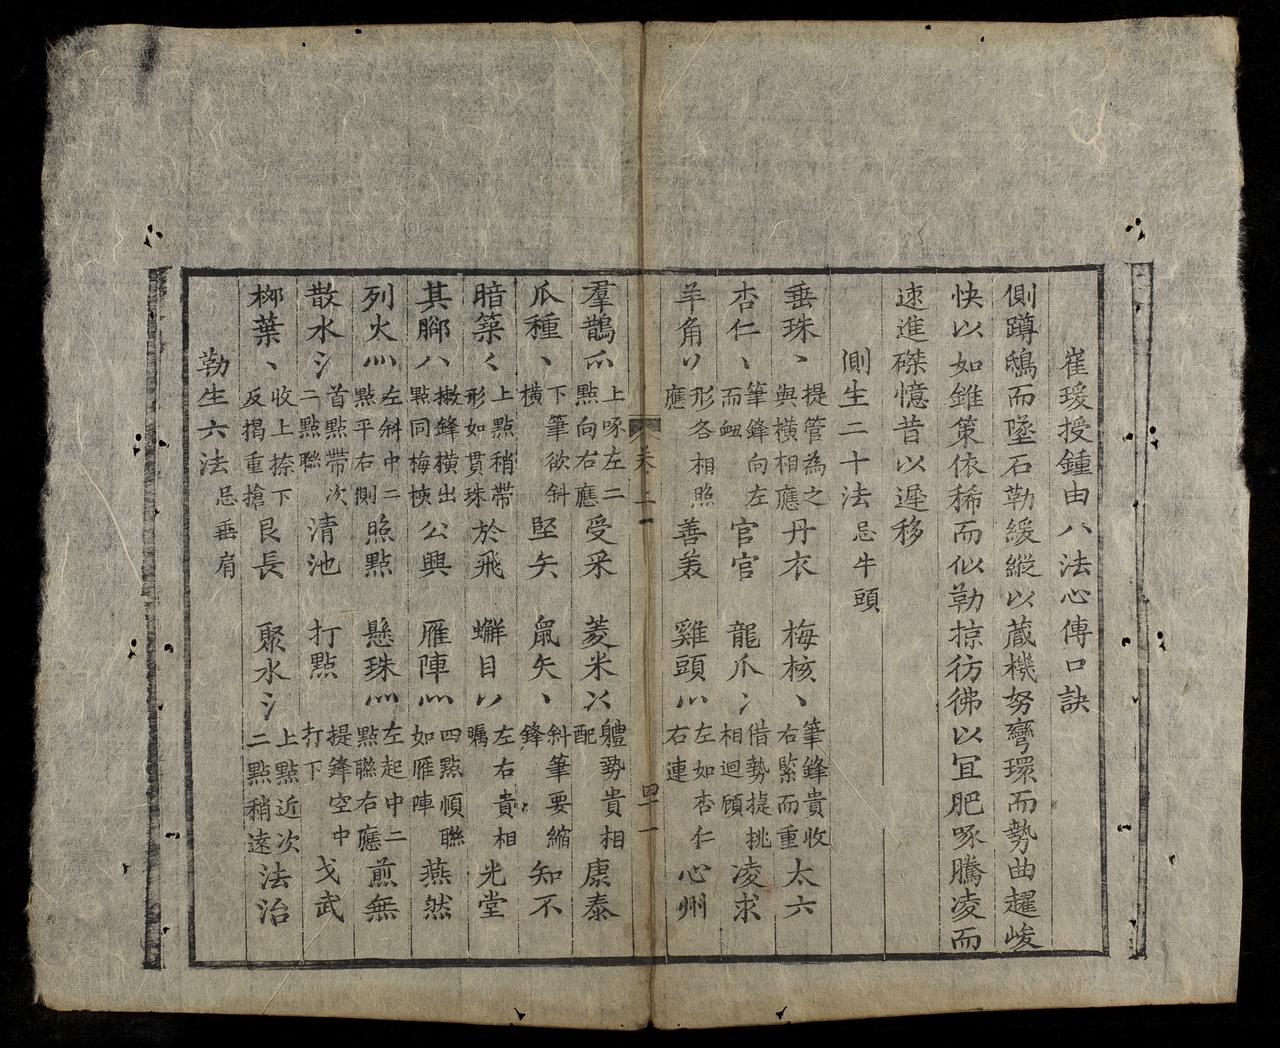 崔瑗授鍾由八法心傳口訣
側蹲鴟而墜石勒緩縱以蔵機努彎環而勢曲趯峻
快以如錐策依稀而似勒掠彷彿以冝肥啄騰凌而
速進磔憶昔以遲移
側生二十法忌牛頭
垂珠丶提管為之與横相應丹衣 梅核丶筆鋒貴收右緊而重太六
杏仁丶筆鋒向左而衄官宦 龍爪冫借勢提挑相迴顧凌求
羊角丷形各相照應善美 雞頭左如杏仁右連心州
羣鵲爫上啄左二點向右應受采 菱米体勢貴相配康泰
瓜種丶下筆欲斜横堅矢 鼠矢丶斜筆要縮鋒知不
暗築上點稍帶形如貫珠於飛 蠏目丷左右貴相矚光堂
其脚八撇鋒横出點同梅核公興 雁陣灬四點順聯如雁陣燕然
列火灬左斜中二點平右側照點 懸珠灬左起中二點聯右應煎無
散水氵首點帶次二點聯清池 打點 提鋒空中打下戈武
柳葉丶收上捺下反揭重搶艮長 聚水氵上點近次二點稍遠法治
勒生六法忌垂肩